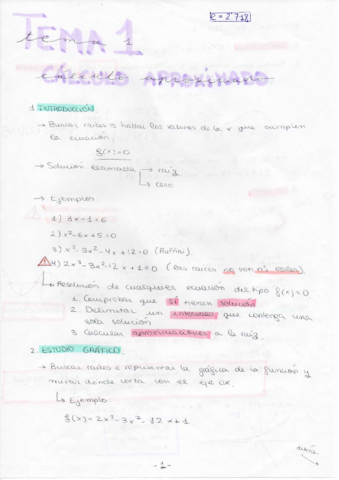 e = 2'718
TEMA 1
tema 1
CÁLCULO APROXIMADO
1. INTRODUCCIÓN
→ Buscar raíces = hallar los valores de la x que cumplen
la ecuación:
f(x)=0
→ Solución llamada → raíz
→ cero
→ Ejemplos
1) 3x-1=6
2) x²-6x+5=0
3) x³-3x²-4x+12=0 (Ruffini)
4) 2x³-3x²-12x+1=0 (las raíces no son nos enteros).
Resolución de cualquier ecuación del tipo f(x)=0
1. Comprobar que sí tienen solución
2. Delimitar un intervalo que contenga una
sola solución
3. Calcular aproximaciones a la raíz.
2. ESTUDIO GRÁFICO
→ Buscar raíces = representar la gráfica de la función y
mirar dónde corta con el eje OX.
↳ Ejemplo:
f(x)=2x³-3x²-12x+1
-1-